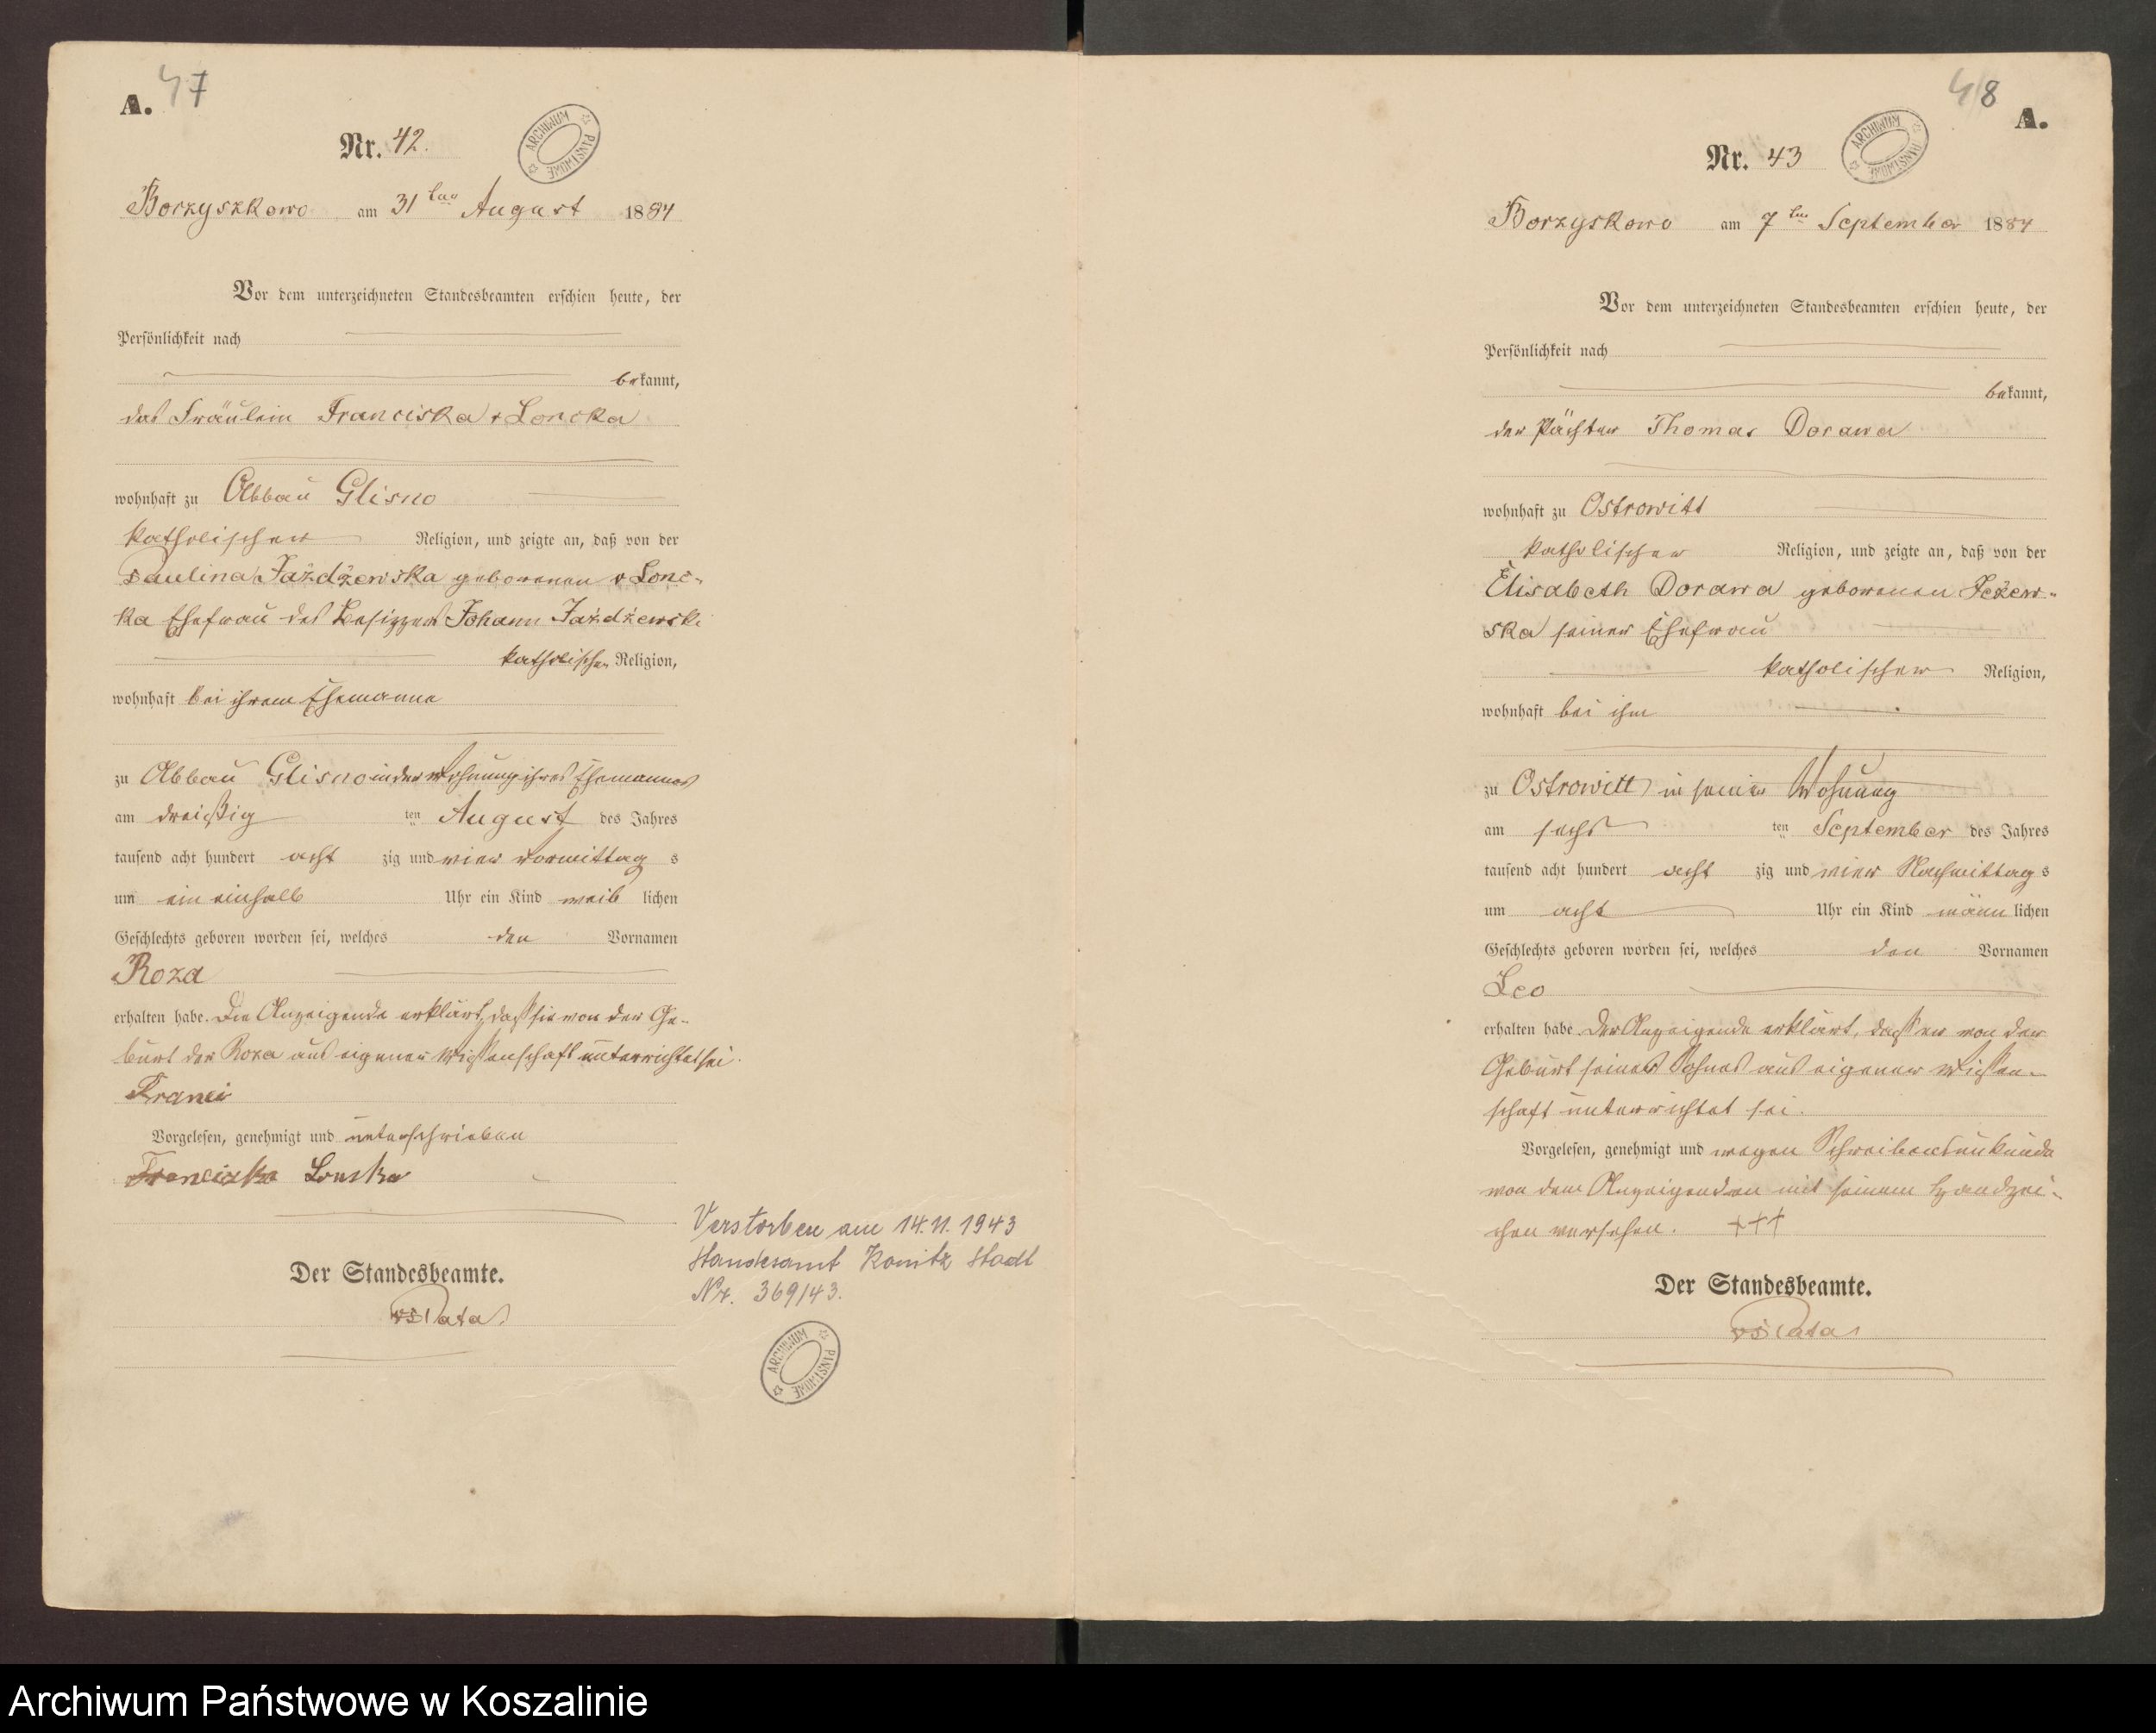 A.
47
Nr. 42.
ARCHIWUM PAŃSTWOWE
Borzyszkowo am 31ten August 1884
Vor dem unterzeichneten Standesbeamten erschien heute, der
Persönlichkeit nach
bekannt,
das Fräulein Franciska v Loncka
wohnhaft zu Abbau Glisno
katholischer Religion, und zeigte an, daß von der
Paulina Jażdżewska geborenen v Lonc-
ka Ehefrau des Besizzers Johann Jażdżewski
katholischer Religion,
wohnhaft bei ihrem Ehemanne
zu Abbau Glisno in der Wohnung ihres Ehemannes
am dreißig ten August des Jahres
tausend acht hundert acht zig und vier Vormittag s
um ein einhalb Uhr ein Kind weib lichen
Geschlechts geboren worden sei, welches den Vornamen
Roza
erhalten habe. Die Anzeigende erklärt, daß sie von der Ge-
burt der Roza aus eigener Wißenschaft unterrichtet sei.
Franci
Vorgelesen, genehmigt und unterschrieben
Franciszka Lonska
Der Standesbeamte.
Verstorben am 14.11.1943
Standesamt Konitz Stadt
Nr. 369/43.
ARCHIWUM PAŃSTWOWE
48
A.
Nr. 43
ARCHIWUM PAŃSTWOWE
Borzyskowo am 7ten September 1884
Vor dem unterzeichneten Standesbeamten erschien heute, der
Persönlichkeit nach
bekannt,
der Pächter Thomas Dorawa
wohnhaft zu Ostrowitt
katholischer Religion, und zeigte an, daß von der
Elisabeth Dorawa geborenen Jeżew-
ska seiner Ehefrau
katholischer Religion,
wohnhaft bei ihm
zu Ostrowitt in seiner Wohnung
am sechs ten September des Jahres
tausend acht hundert acht zig und vier Nachmittag s
um acht Uhr ein Kind männ lichen
Geschlechts geboren worden sei, welches den Vornamen
Leo
erhalten habe. Der Anzeigende erklärt, daß er von der
Geburt seines Sohnes aus eigener Wißen-
schaft unterrichtet sei.
Vorgelesen, genehmigt und wegen Schreibensunkunde
von dem Anzeigenden mit seinem Handzei-
chen versehen. +++
Der Standesbeamte.
Archiwum Państwowe w Koszalinie